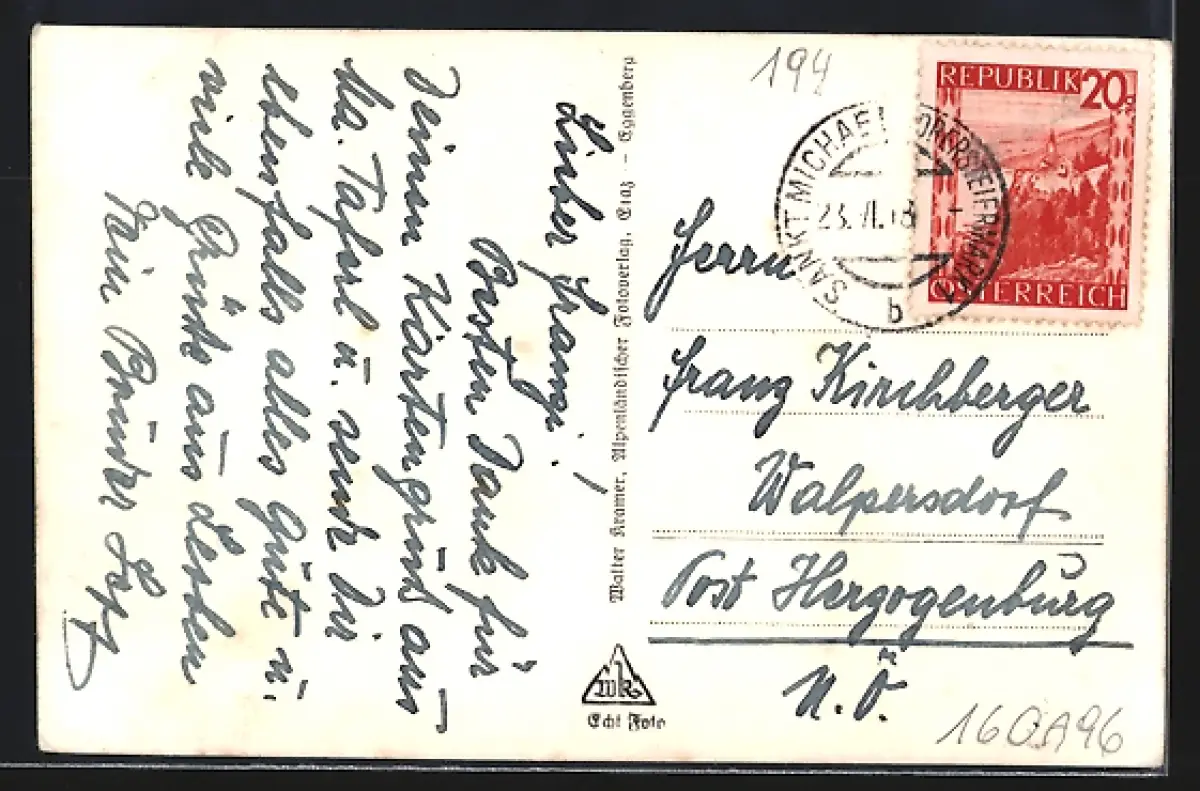 Lieber Franzi!
Besten Dank für
Deinen Kartengruß aus
Ma. Taferl u. sende Dir
ebenfalls alles Gute u.
viele Grüße aus Leoben
Dein Bruder
Walter Kramer, Alpenländischer Fotoverlag, Graz - Eggenberg
WK
Echt Foto
194
REPUBLIK 20g
ÖSTERREICH
SANKT MICHAEL OBERSTEIERMARK
23. VI. 48
b
Herrn
Franz Kirchberger
Walpersdorf
Post Herzogenburg
N.Ö.
160A96